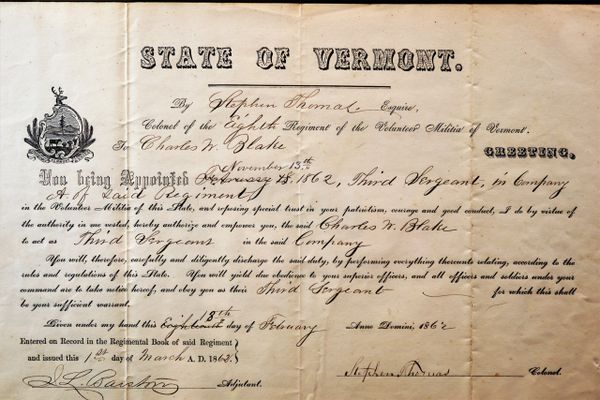 STATE OF VERMONT.
By Stephen Thomas Esquire,
Colonel of the Eighth Regiment of the Volunteer Militia of Vermont.
To Charles W. Blake
GREETING,
November 13th
You being Appointed February 18, 1862, Third Sergeant, in Company
A of said Regiment
in the Volunteer Militia of this State, and reposing special trust in your patriotism, courage and good conduct, I do by virtue of
the authority in me vested, hereby authorize and empower you, the said Charles W. Blake
to act as Third Sergeant in the said Company
You will, therefore, carefully and diligently discharge the said duty, by performing everything thereunto relating, according to the
rules and regulations of this State. You will yield due obedience to your superior officers, and all officers and soldiers under your
command are to take notice hereof, and obey you as their Third Sergeant for which this shall
be your sufficient warrant.
18th
Given under my hand this Eighteenth day of February Anno Domini, 1862
Entered on Record in the Regimental Book of said Regiment
and issued this 1st day of March A. D. 1862.
Stephen Thomas Colonel.
Adjutant.